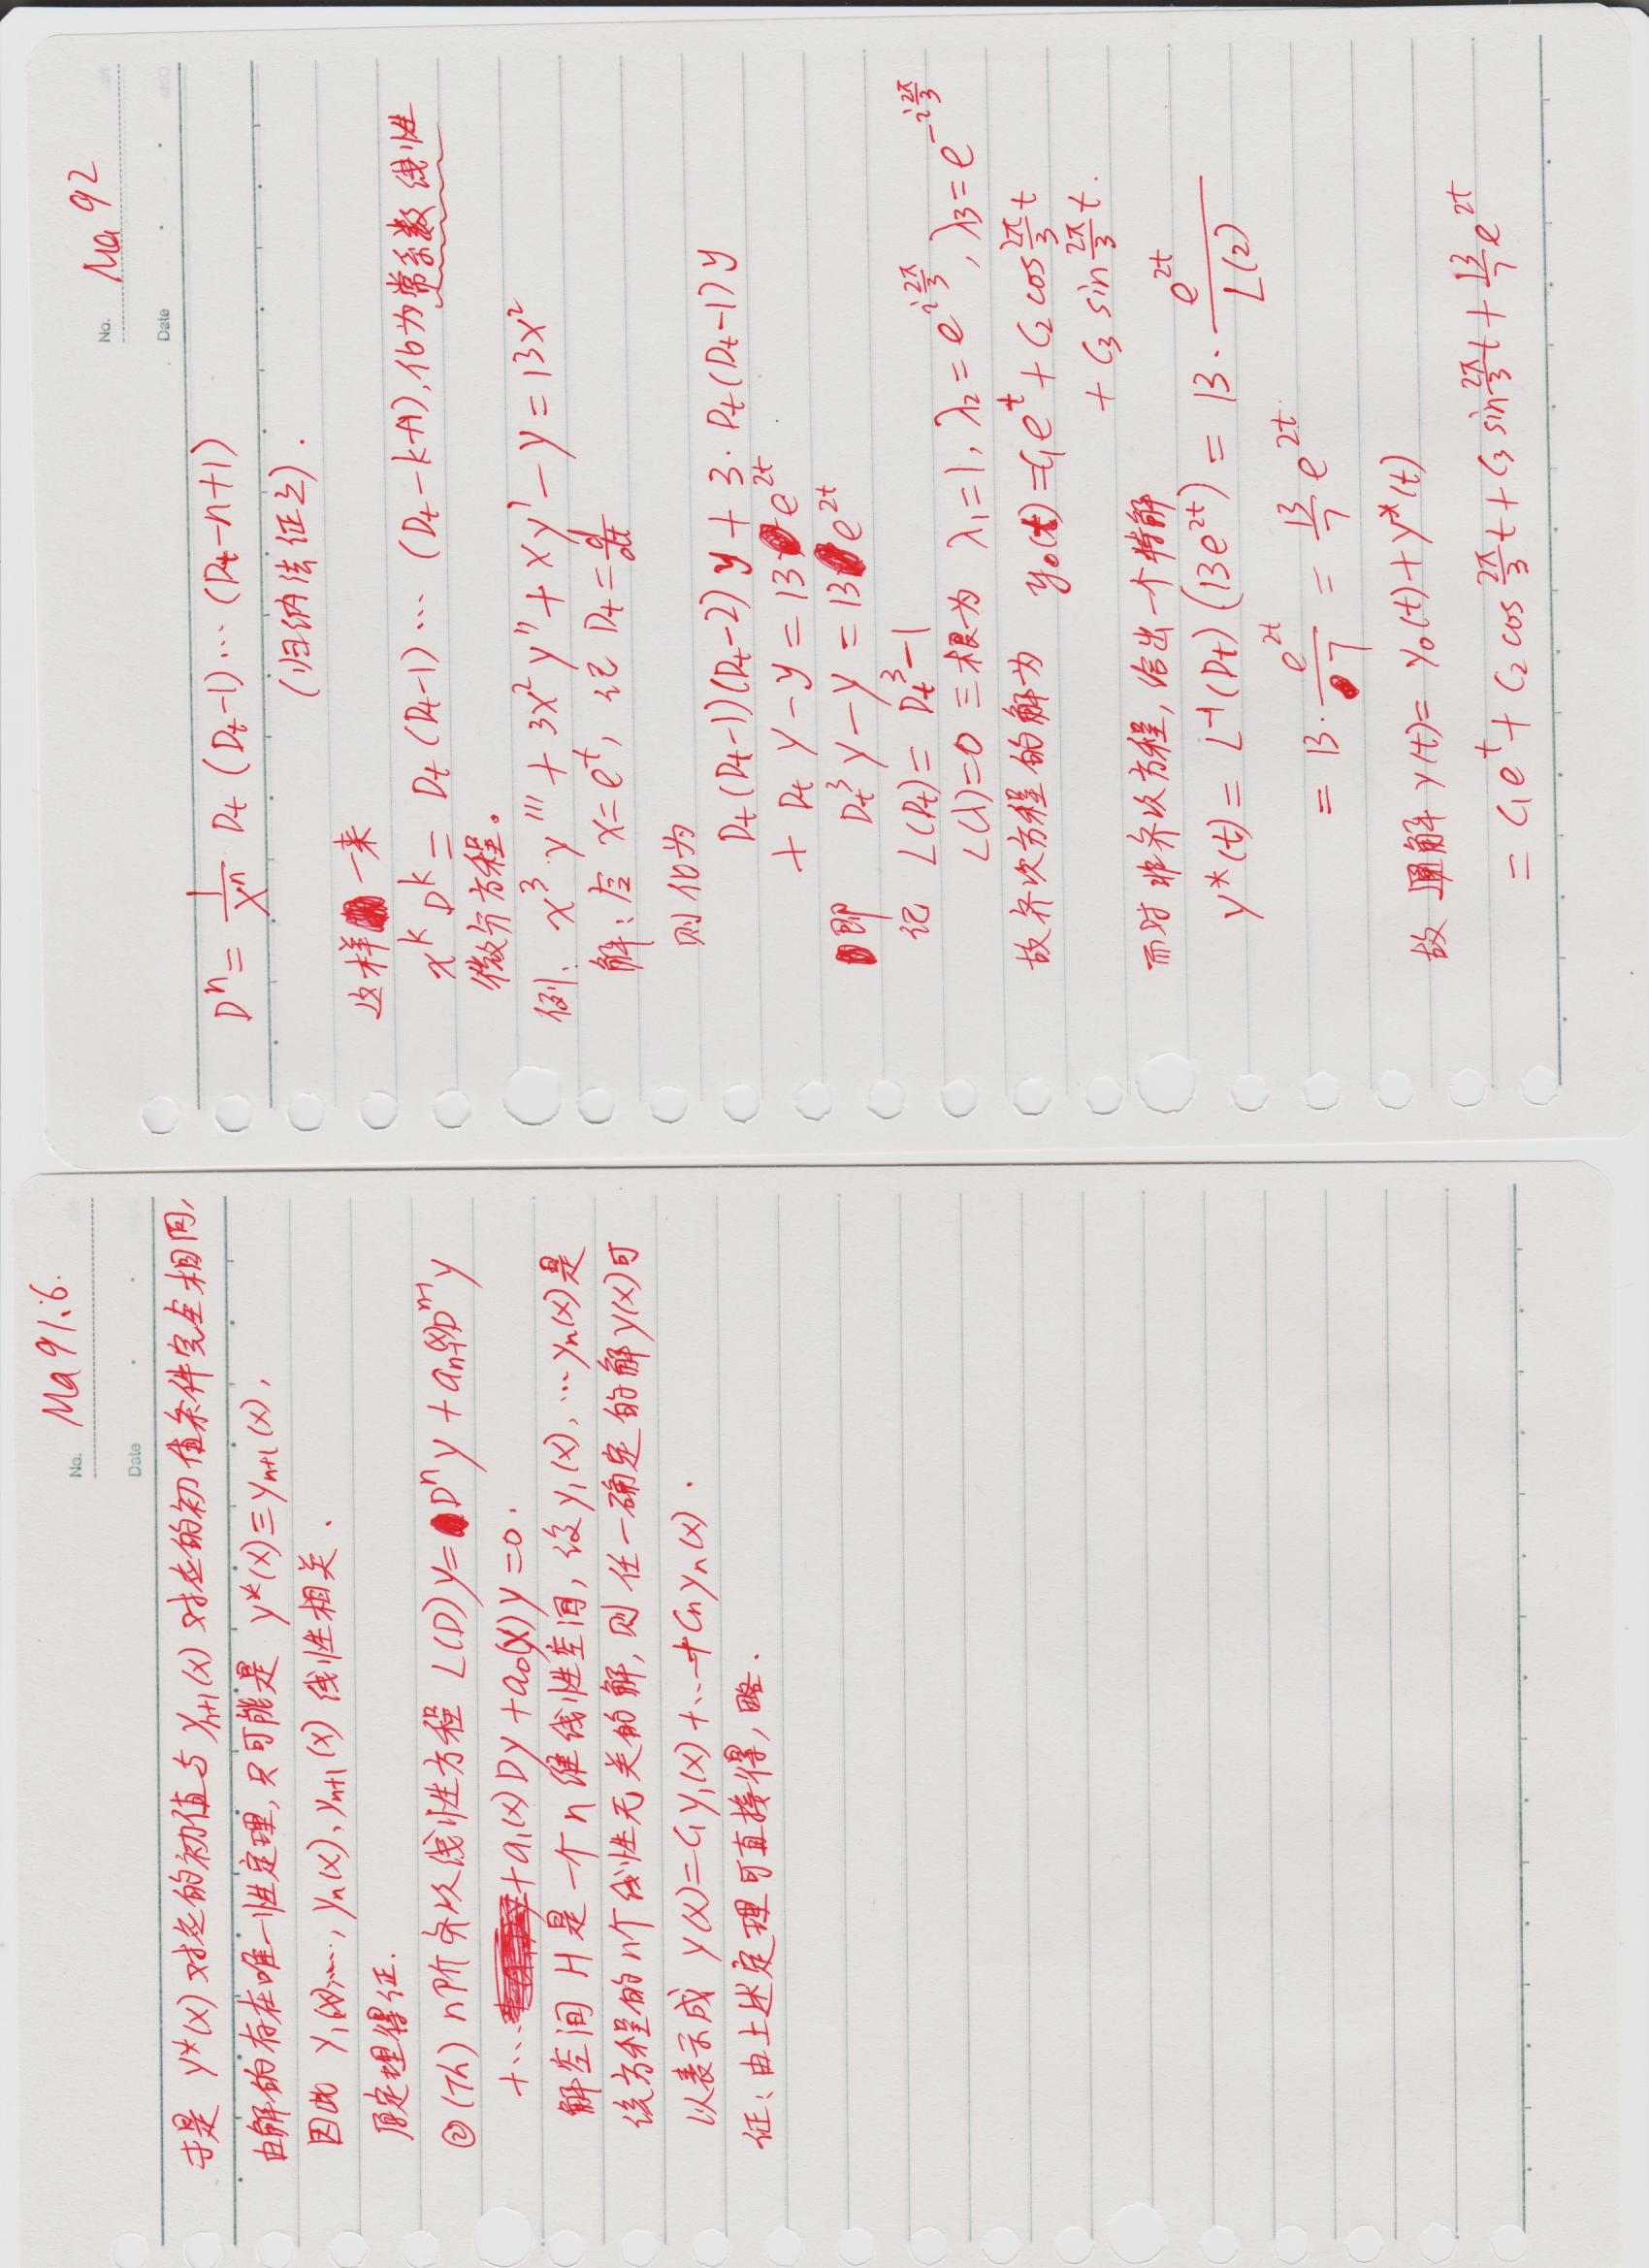 No. Ma 91.6.
Date
于是 y*(x) 对应的初值与 yₙ₊₁(x) 对应的初值条件完全相同,
由解的存在唯一性定理, 只可能是 y*(x)≡yₙ₊₁(x),
因此 y₁(x),……, yₙ(x), yₙ₊₁(x) 线性相关.
原定理得证.
② (Th) n阶齐次线性方程 L(D)y= Dⁿy + aₙ₋₁(x)Dⁿ⁻¹y
+… +a₁(x)Dy+a₀(x)y=0.
解空间 H 是一个 n 维线性空间, 设 y₁(x), …yₙ(x)是
该方程的n个线性无关的解, 则任一确定的解y(x)可
以表示成 y(x)=C₁y₁(x)+…+Cₙyₙ(x).
证: 由上述定理可直接得, 略.
No. Ma 92
Date
Dⁿ= 1/xⁿ Dt (Dt-1)… (Dt-n+1)
(归纳法证之).
这样一来
xᵏDᵏ = Dt(Dt-1) … (Dt-k+1), 化为常系数线性
微分方程。
例: x³y'''+3x²y''+xy'-y=13x²
解: 令 x=eᵗ, 记 Dt=d/dt
则化为
Dt(Dt-1)(Dt-2)y + 3·Dt(Dt-1)y
+ Dt y-y=13e²ᵗ
即 Dt³y-y=13e²ᵗ
记 L(Dt)= Dt³-1
L(λ)=0 三根为 λ₁=1, λ₂=e^{i2π/3}, λ₃=e^{-i2π/3}
故齐次方程的解为 y₀(t)=C₁eᵗ+C₂cos 2π/3 t
+ C₃ sin 2π/3 t.
而对非齐次方程, 给出一个特解
y*(t)= L⁻¹(Dt)(13e²ᵗ)= 13· e²ᵗ/L(2)
= 13· e²ᵗ/7 = 13/7 e²ᵗ
故通解 y(t)= y₀(t)+y*(t)
= C₁eᵗ+C₂cos 2π/3 t+C₃sin 2π/3 t+13/7 e²ᵗ